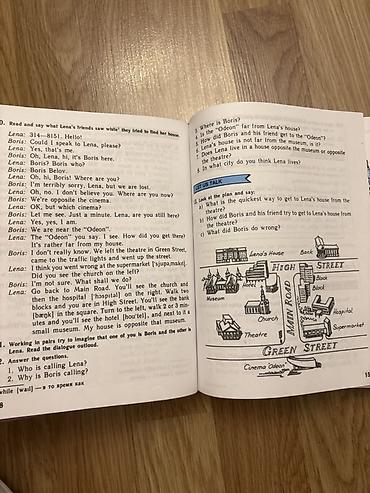 0. Read and say what Lena's friends saw while¹ they tried to find her house.
Lena: 314—8151. Hello!
Boris: Could I speak to Lena, please?
Lena: Yes, that's me.
Boris: Oh, Lena, hi, it's Boris here.
Lena: Boris? Boris who?
Boris: Boris Belov.
Lena: Oh, hi, Boris! Where are you?
Boris: I'm terribly sorry, Lena, but we are lost.
Lena: Oh, no. I don't believe you. Where are you now?
Boris: We're opposite the cinema.
Lena: OK, but which cinema?
Boris: Let me see. Just a minute. Lena, are you still here?
Lena: Yes, yes, I am.
Boris: We are near the "Odeon".
Lena: The "Odeon" you say. I see. How did you get there?
It's rather far from my house.
Boris: I don't really know. We left the theatre in Green Street,
came to the traffic lights and went up the street.
Lena: I think you went wrong at the supermarket ['sju:pəmɑ:kɪt].
Did you see the church on the left?
Boris: I'm not sure. What shall we do?
Lena: Go back to Main Road. You'll see the church and
then the hospital ['hɒspɪtl] on the right. Walk two
blocks and you are in High Street. You'll see the bank
[bæŋk] in the square. Turn to the left, walk 2 or 3 min-
utes and you'll see the hotel [həu'tel], and next to it a
small museum. My house is opposite that museum.
1. Working in pairs try to imagine that one of you is Boris and the other is
Lena. Read the dialogue outloud.
2. Answer the questions.
1. Who is calling Lena?
2. Why is Boris calling?
while [waɪl] — в то время как
8
3. Where is Boris?
4. Is the "Odeon" far from Lena's house?
5. How did Boris and his friend get to the "Odeon"?
6. Lena's house is not far from the museum, is it?
7. Does Lena live in a house opposite the museum or opposite
the theatre?
8. In what city do you think Lena lives?
LET US TALK
Look at the plan and say:
a) What is the quickest way to get to Lena's house from the
theatre?
b) How did Boris and his friend try to get to Lena's house from
the theatre?
c) What did Boris do wrong?
Lena's House
Bank
HIGH STREET
Museum
Block
Block
MAIN ROAD
Hospital
Church
Supermarket
Theatre
GREEN STREET
Cinema "Odeon"
15